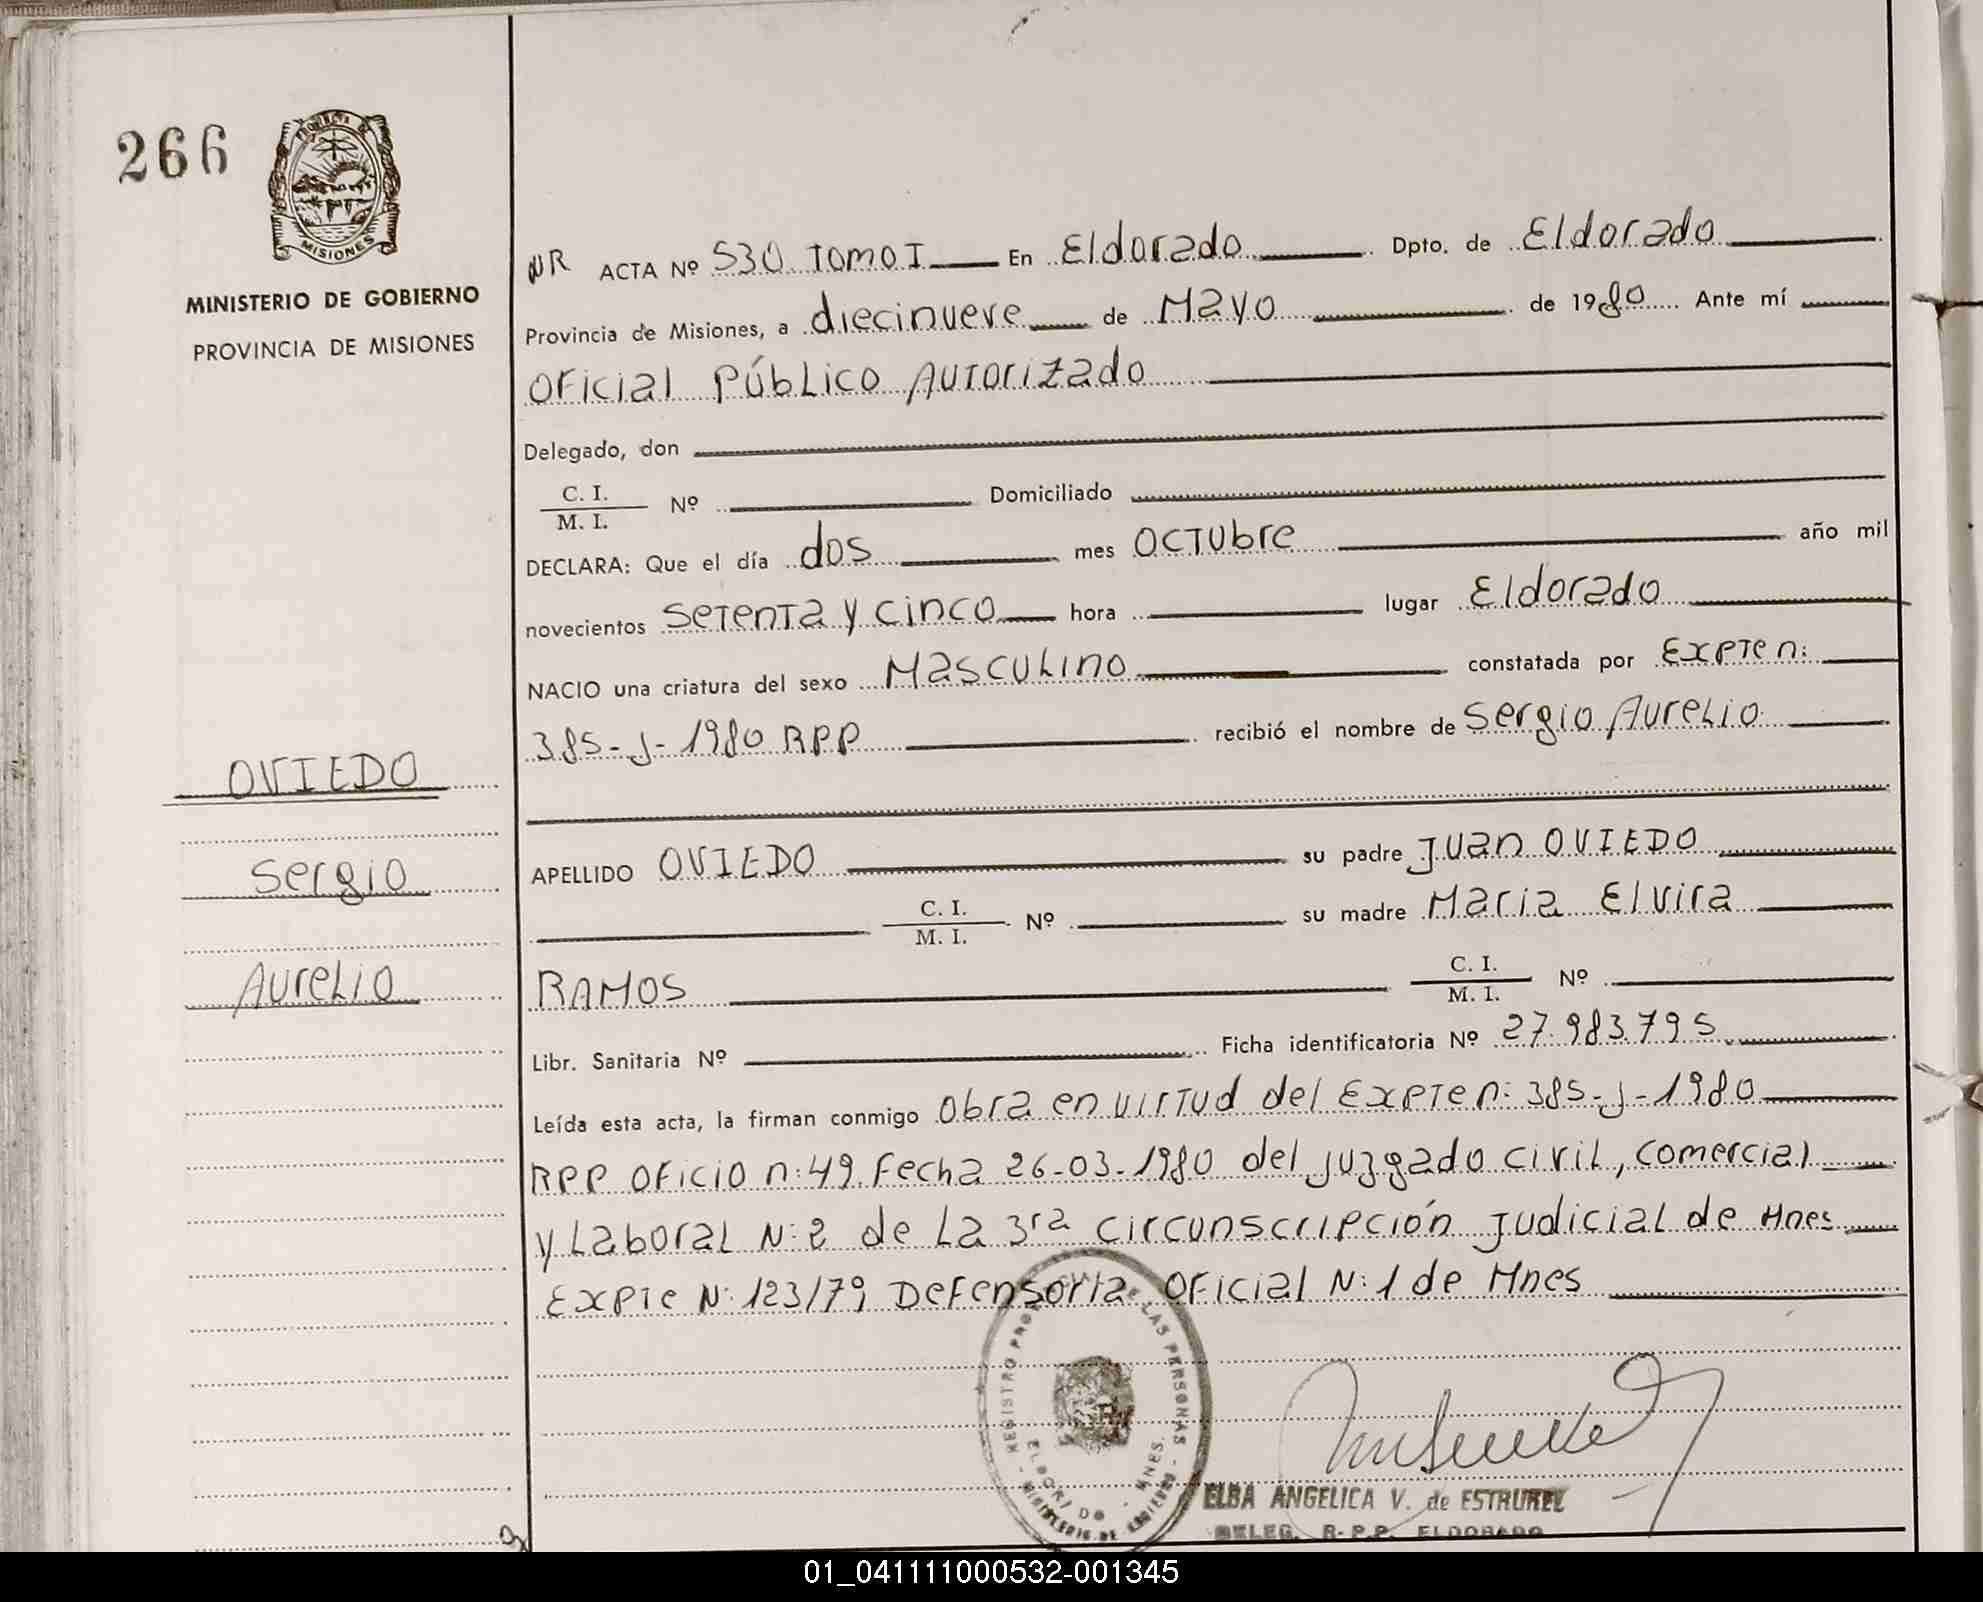 266
PROVINCIA DE
MISIONES
MINISTERIO DE GOBIERNO
PROVINCIA DE MISIONES
OVIEDO
Sergio
Aurelio
NR ACTA Nº 530 Tomo I En Eldorado Dpto. de Eldorado
Provincia de Misiones, a diecinueve de Mayo de 1980 Ante mí
Oficial Público Autorizado
Delegado, don
C. I. / M. I. Nº Domiciliado
DECLARA: Que el día dos mes Octubre año mil
novecientos setenta y cinco hora lugar Eldorado
NACIO una criatura del sexo Masculino constatada por Expte n:
385-J-1980 RPP recibió el nombre de Sergio Aurelio
APELLIDO OVIEDO su padre Juan OVIEDO
C. I. / M. I. Nº su madre Maria Elvira
RAMOS C. I. / M. I. Nº
Libr. Sanitaria Nº Ficha identificatoria Nº 27.983.795
Leída esta acta, la firman conmigo Obra en virtud del Expte n: 385-J-1980
RPP Oficio n: 49 Fecha 26-03-1980 del juzgado civil, comercial
y Laboral N: 2 de la 3ra circunscripción Judicial de Mnes
Expte N: 123/79 Defensoria Oficial N: 1 de Mnes
REGISTRO PROVINCIAL DE LAS PERSONAS
ELDORADO - MNES.
MINISTERIO DE GOBIERNO
ELBA ANGELICA V. de ESTRUREL
DELEG. R-P.P. ELDORADO
01_041111000532-001345